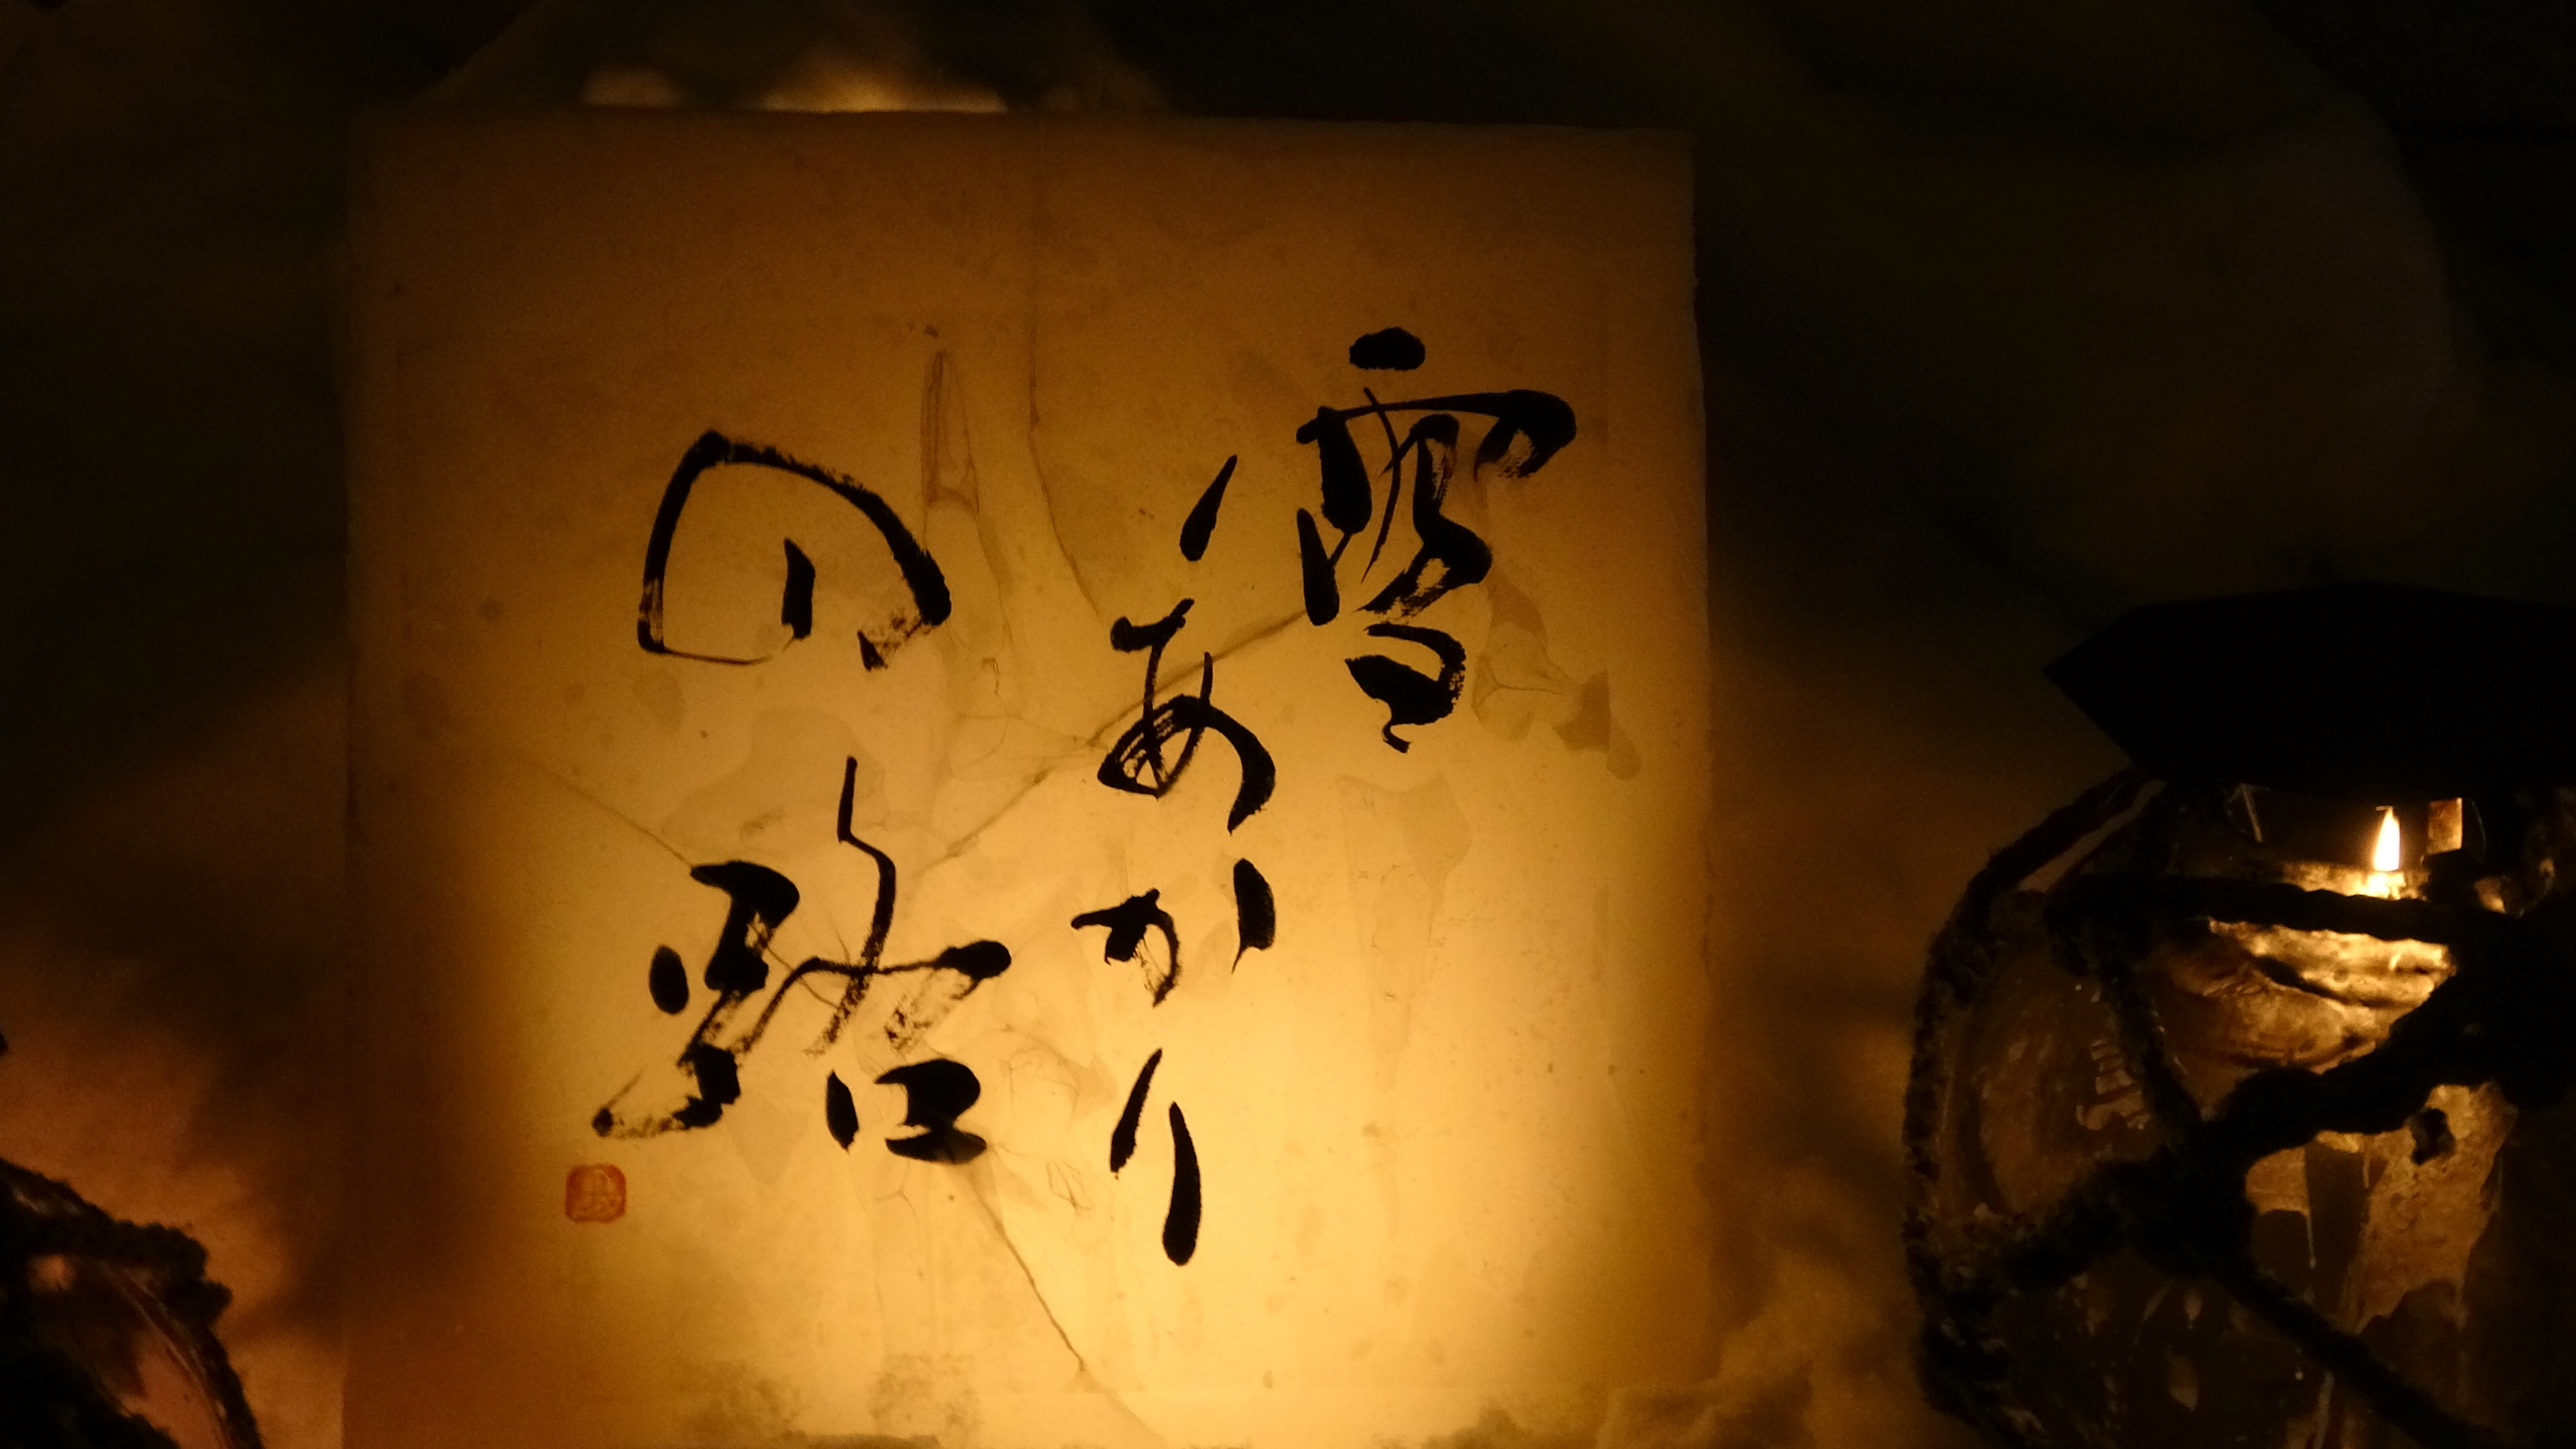 雪
あかり
の路